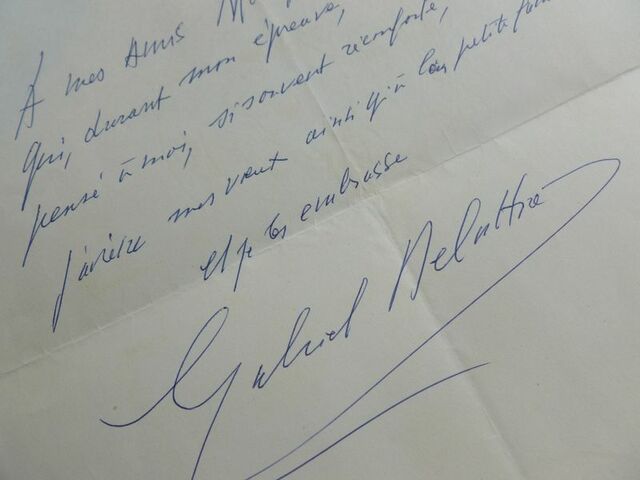 A mes Amis
qui, durant mon épreuve,
pensé à moi, si souvent réconforté,
mes vœux ainsi qu'à leur petite
et je les embrasse
Gabriel Delattre